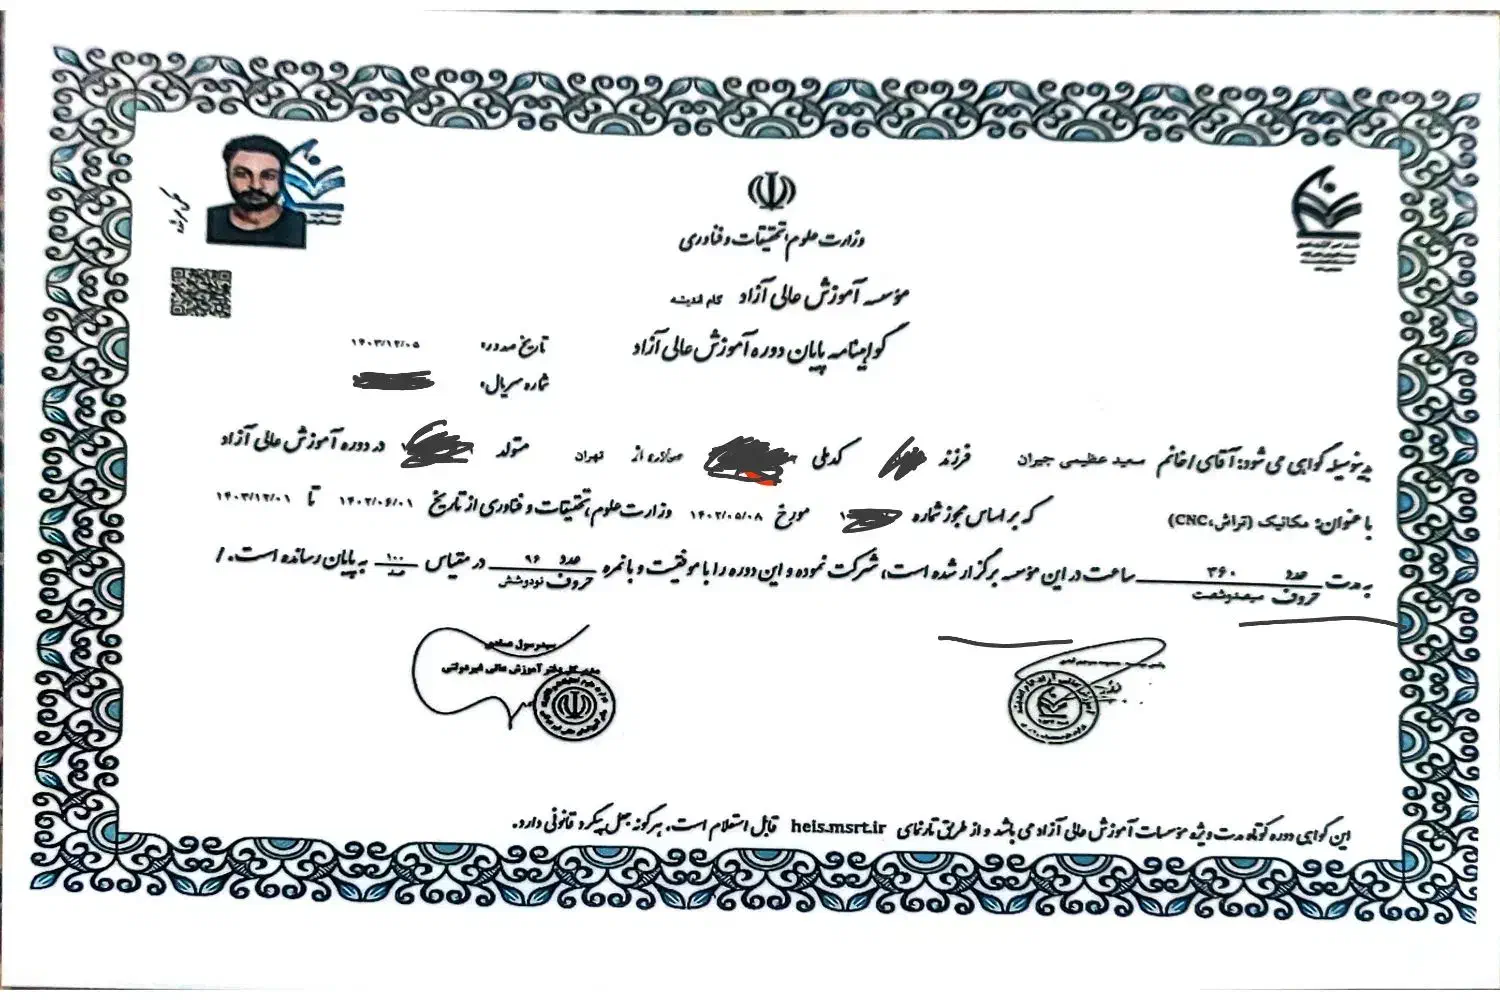 وزارت علوم، تحقیقات و فناوری
مؤسسه آموزش عالی آزاد گام اندیشه
گواهینامه پایان دوره آموزش عالی آزاد
تاریخ صدور: ۱۴۰۳/۱۲/۰۵
شماره سریال:
بدینوسیله گواهی می شود: آقای / خانم سعید عظیمی جیران فرزند کدملی صادره از تهران متولد در دوره آموزش عالی آزاد
با عنوان: مکانیک (تراش،CNC) که بر اساس مجوز شماره مورخ ۱۴۰۲/۰۵/۰۸ وزارت علوم، تحقیقات و فناوری از تاریخ ۱۴۰۲/۰۶/۰۱ تا ۱۴۰۳/۱۲/۰۱
به مدت عدد ۳۶۰ حروف سیصدوشصت ساعت در این مؤسسه برگزار شده است، شرکت نموده و این دوره را با موفقیت و با نمره عدد ۹۶ حروف نودوشش در مقیاس ۱۰۰ صد به پایان رسانده است. /
سیدرسول عمادی
مدیر کل دفتر آموزش عالی غیردولتی
این گواهی دوره کوتاه مدت ویژه مؤسسات آموزش عالی آزاد می باشد و از طریق تارنمای heis.msrt.ir قابل استعلام است. هرگونه جعل پیگرد قانونی دارد.